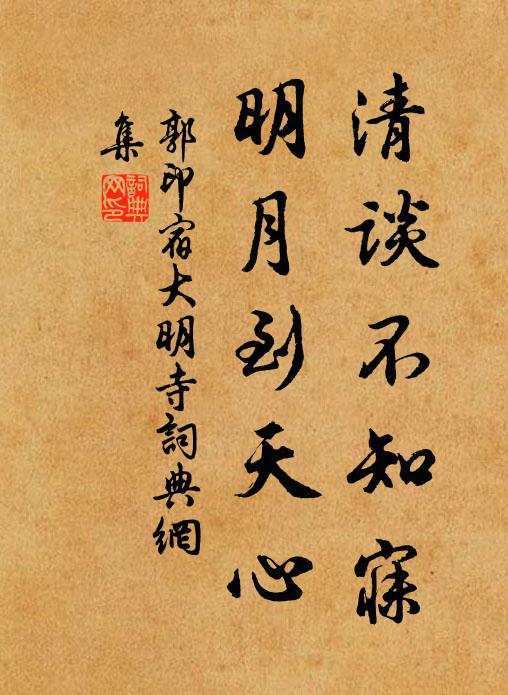 清談不知寐
明月到天心
郭印宿大明寺詞典網
集
詞典
网印